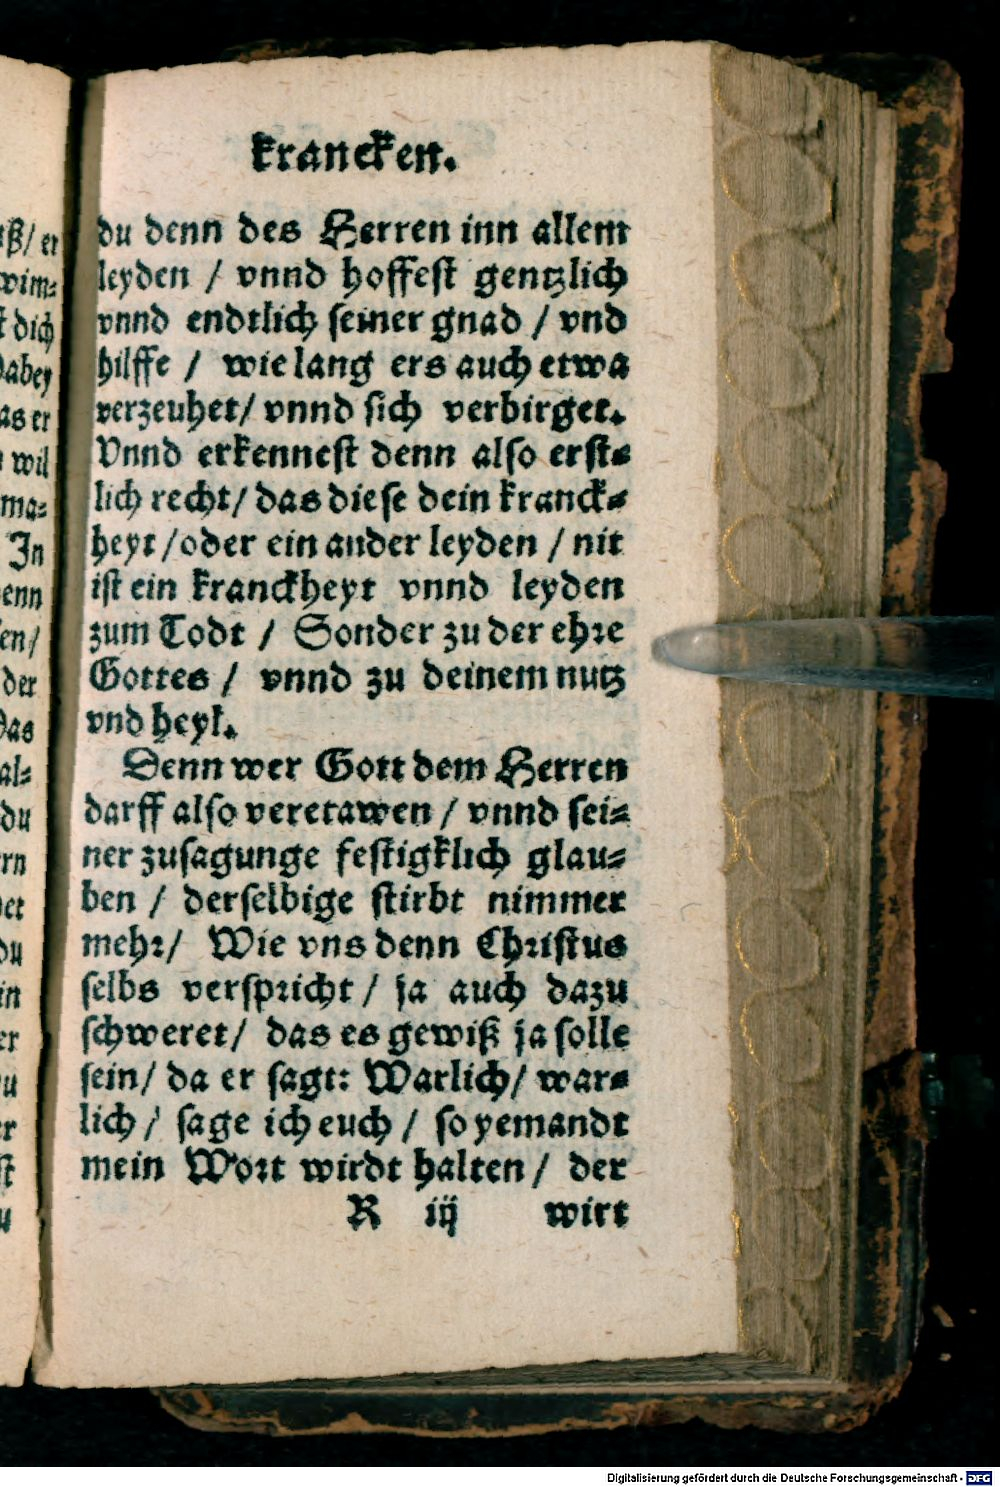 krancken.
du denn des Herren inn allem
leyden / vnnd hoffest gentzlich
vnnd endtlich seiner gnad / vnd
hilffe / wie lang ers auch etwa
verzeuhet/ vnnd sich verbirget.
Vnnd erkennest denn also erst-
lich recht/ das diese dein kranck-
heyt /oder ein ander leyden / nit
ist ein kranckheyt vnnd leyden
zum Todt / Sonder zu der ehre
Gottes / vnnd zu deinem nutz
vnd heyl.
Denn wer Gott dem Herren
darff also veretawen / vnnd sei-
ner zusagunge festigklich glau-
ben / derselbige stirbt nimmer
mehr/ Wie vns denn Christus
selbs verspricht / ja auch dazu
schweret/ das es gewiß ja solle
sein/ da er sagt: Warlich/ war-
lich / sage ich euch / so yemandt
mein Wort wirdt halten / der
R iij wirt
ß/ er
wim-
dich
dabey
as er
wil
ma-
In
enn
en/
der
Das
al-
du
rn
et
du
in
er
u
er
st
u
Digitalisierung gefördert durch die Deutsche Forschungsgemeinschaft - DFG